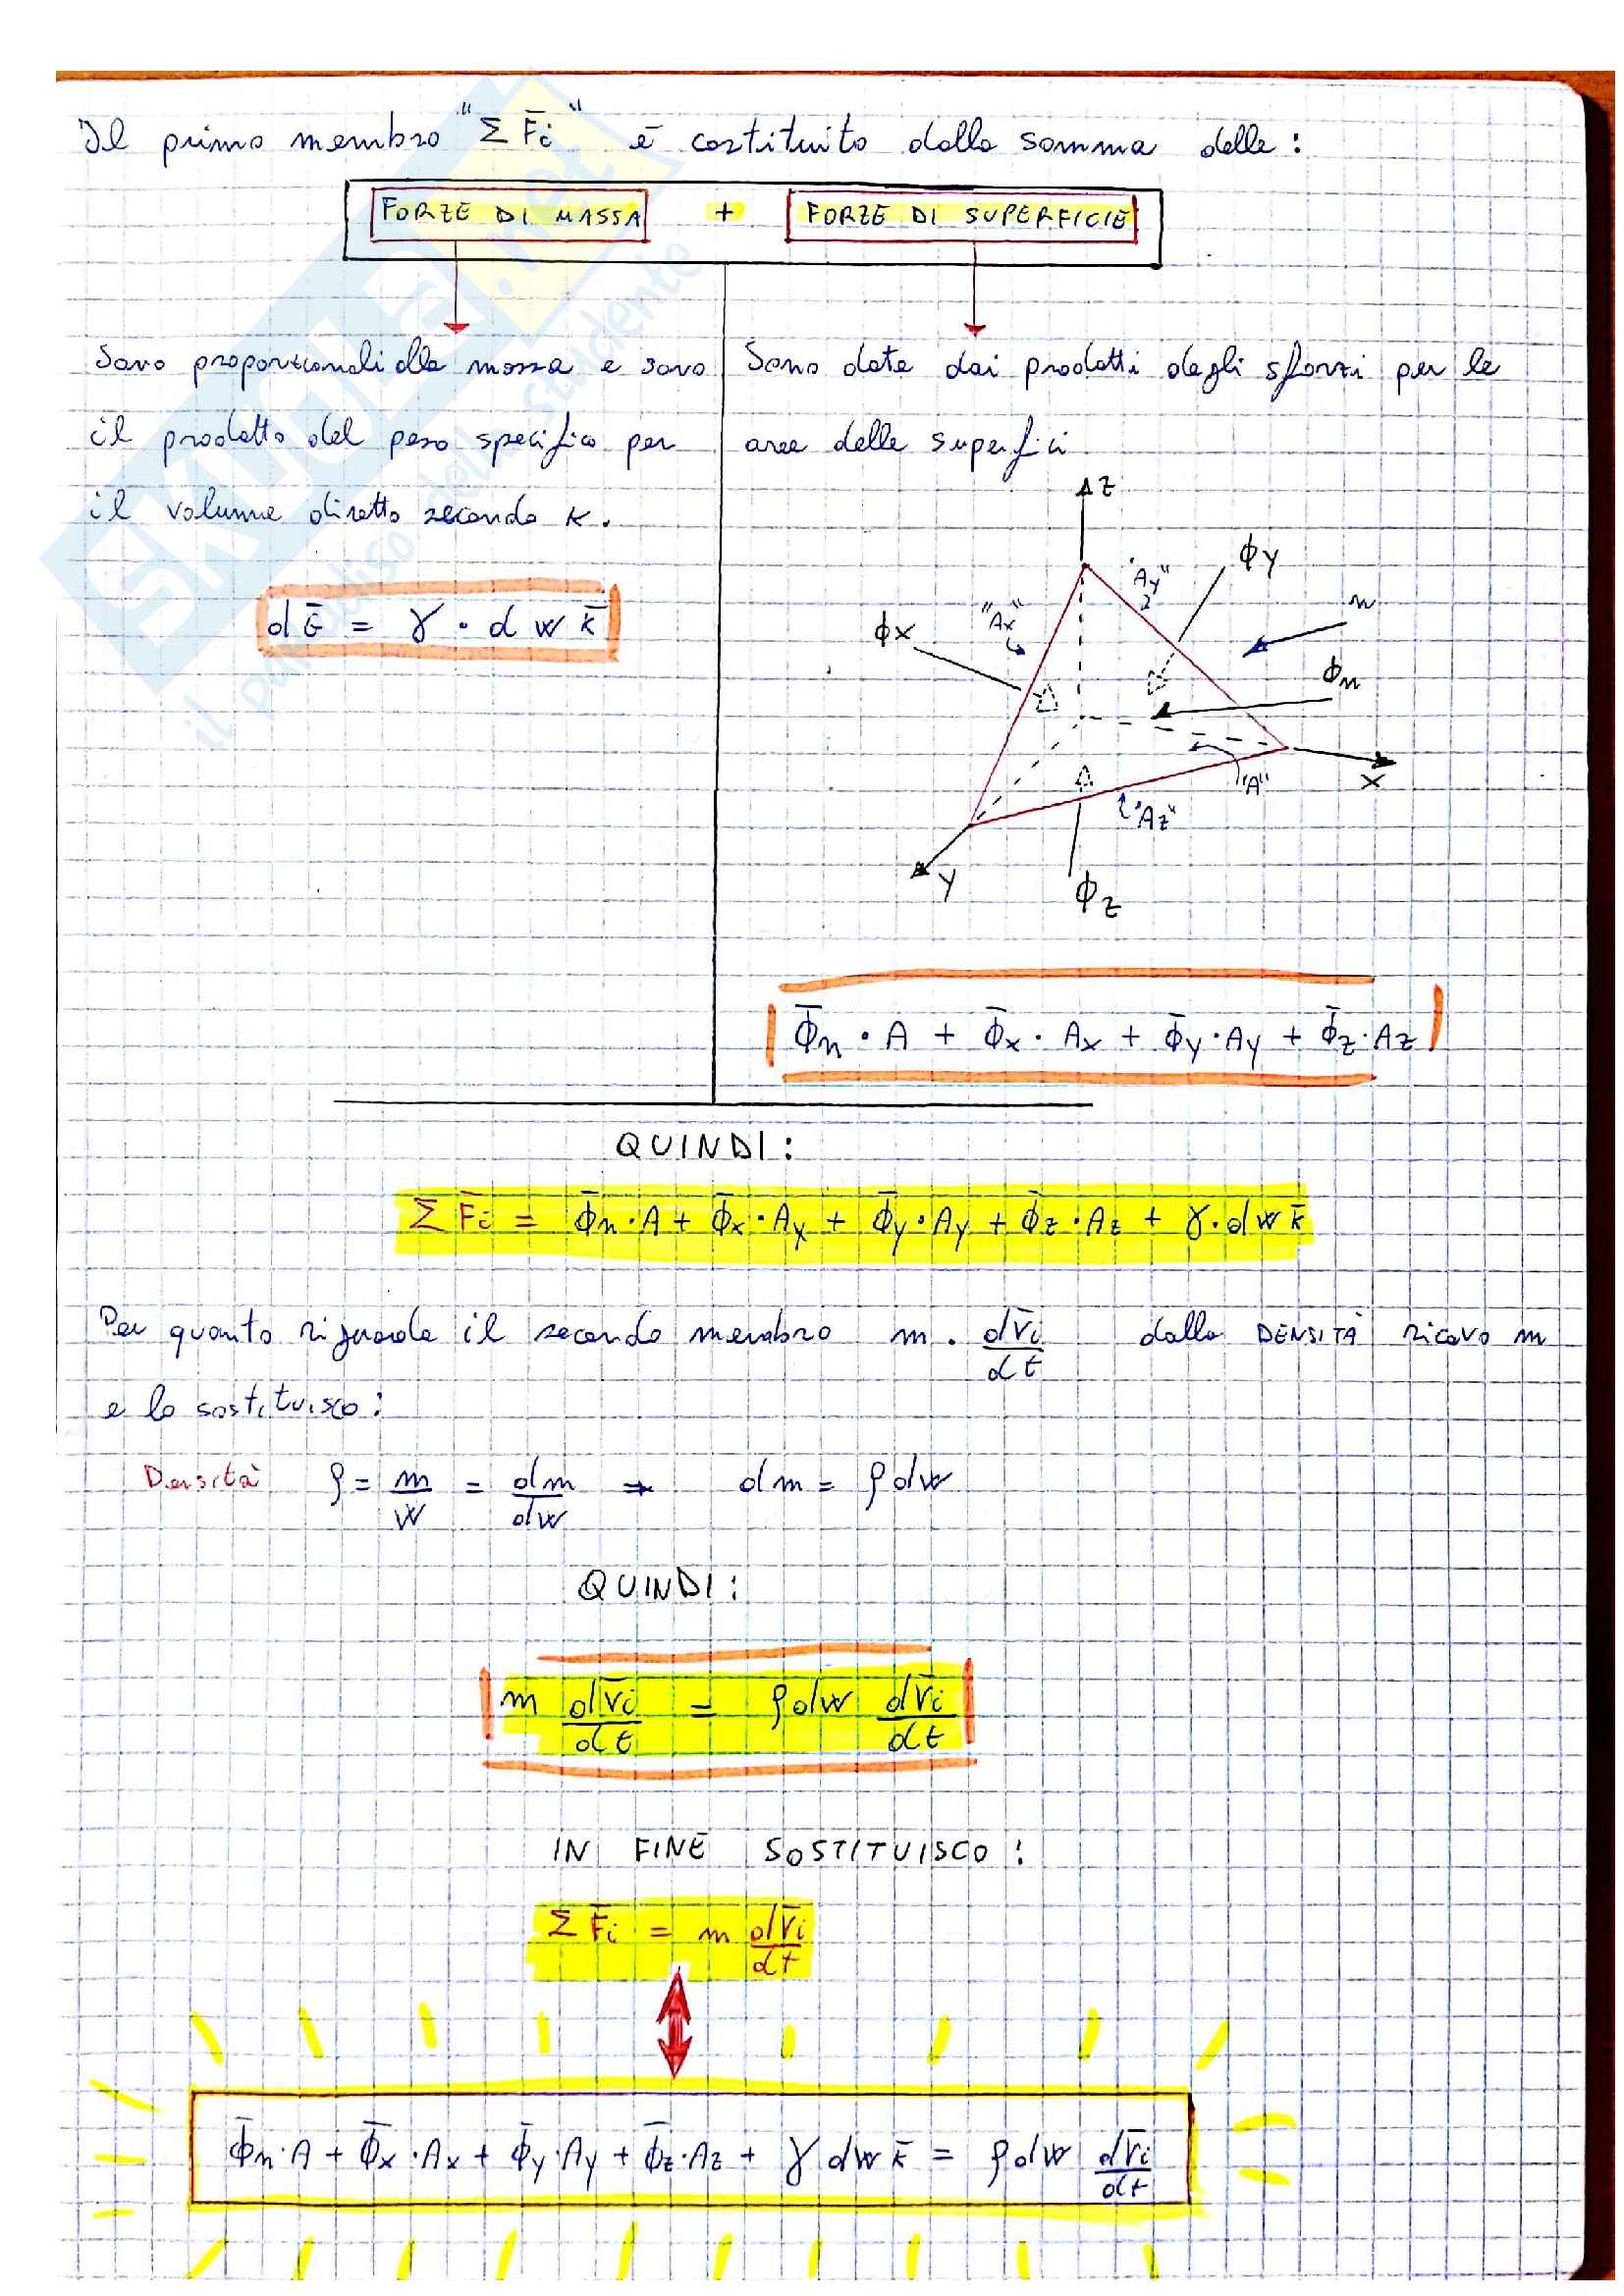 Il primo membro "Σ F̄i" è costituito dalla somma delle:
FORZE DI MASSA + FORZE DI SUPERFICIE
Sono proporzionali alla massa e sono
il prodotto del peso specifico per
il volume diretto secondo K.
dḠ = γ · d w k̄
Sono date dai prodotti degli sforzi per le
aree delle superfici
z
ϕy
"Ay"
"Ax"
n
ϕx
ϕn
"A"
x
"Az"
y
ϕz
ϕ̄n · A + ϕ̄x · Ax + ϕ̄y · Ay + ϕ̄z · Az
QUINDI:
Σ F̄i = ϕ̄n · A + ϕ̄x · Ax + ϕ̄y · Ay + ϕ̄z · Az + γ · d w k̄
Per quanto riguarda il secondo membro m · dv̄i/dt dalla DENSITÀ ricavo m
e lo sostituisco:
Densità ρ = m/W = dm/dW ⇒ dm = ρ dw
QUINDI:
m dv̄i/dt = ρ dw dv̄i/dt
IN FINE SOSTITUISCO:
Σ F̄i = m dv̄i/dt
ϕ̄n · A + ϕ̄x · Ax + ϕ̄y · Ay + ϕ̄z · Az + γ dw k̄ = ρ dw dv̄i/dt
SKUOLA.net
il paradiso dello studente